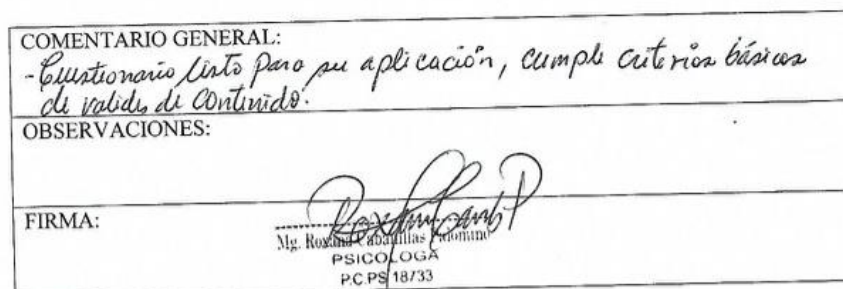 COMENTARIO GENERAL:
- Cuestionario listo para su aplicación, cumple criterios básicos
de valides de contenido.
OBSERVACIONES:
FIRMA:
Mg. Roxana Cabanillas Palomino
PSICOLOGA
P.C.PS 18733